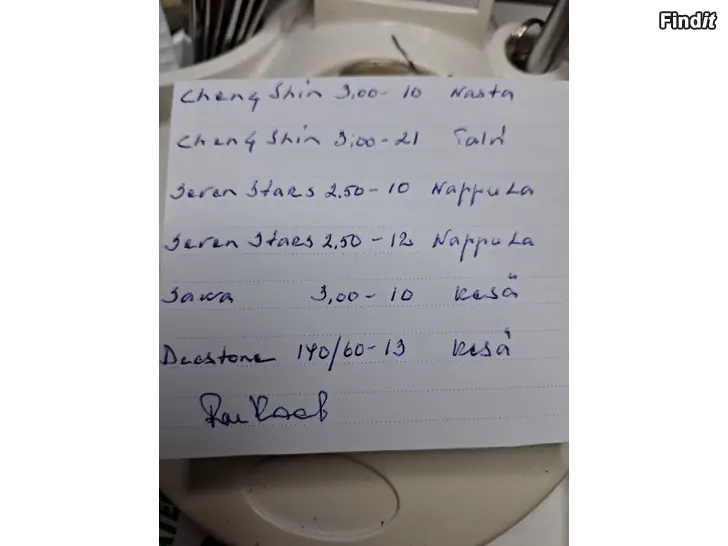 Findit
Cheng Shin 3,00-10 Nasta
Cheng Shin 3,00-21 Talvi
Seven Stars 2.50-10 Nappula
Seven Stars 2.50-12 Nappula
Sawa 3,00-10 Kesä
Deestone 140/60-13 Kesä